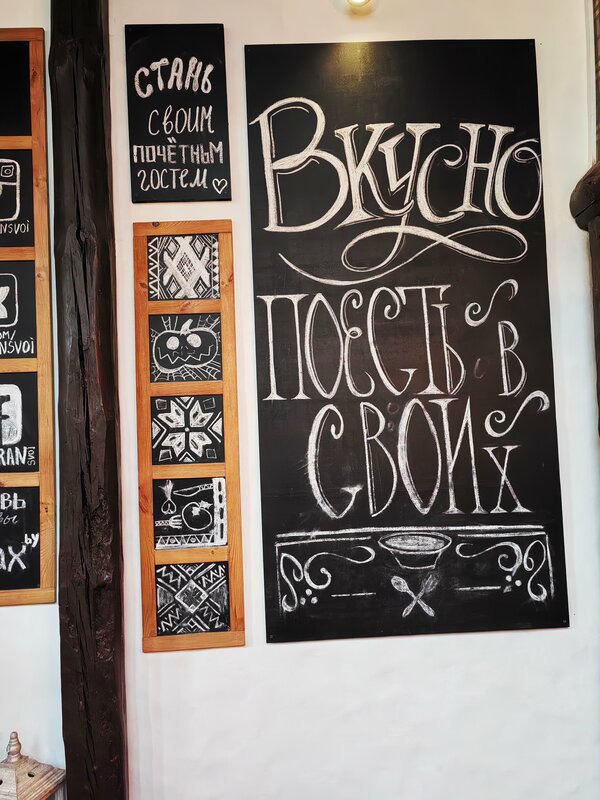 СТАНЬ
СВОИМ
ПОЧЁТНЫМ
ГОСТЕМ
ВКУСНО
ПОЕСТЬ В
СВОИХ
NSVOI
OM/
NSVOI
RAN
SVOI
by